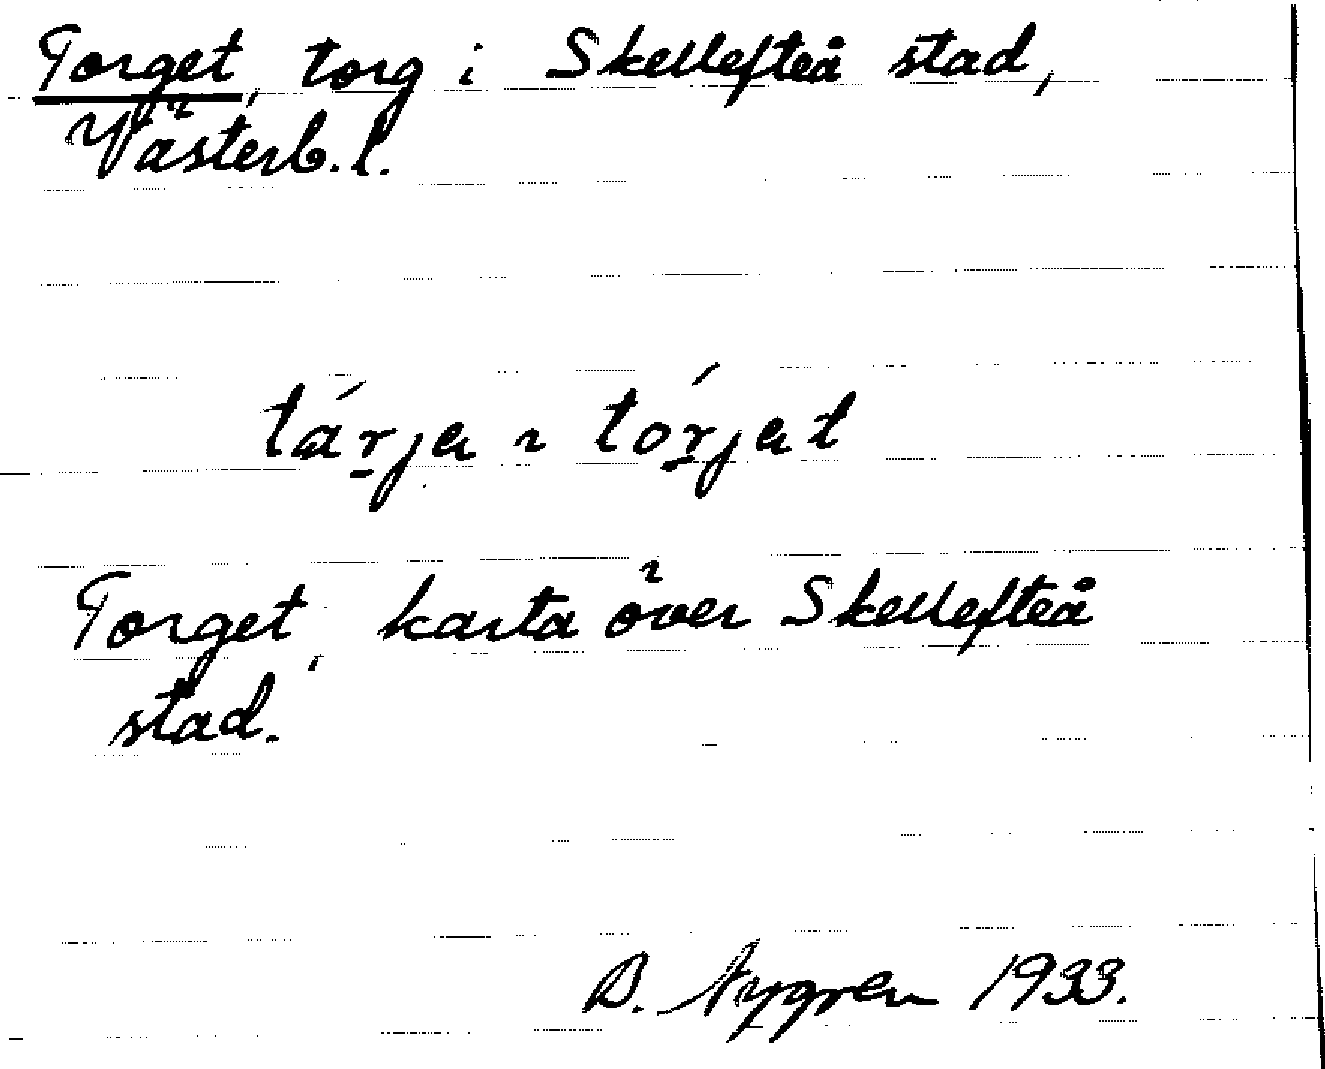 Torget, torg i Skellefteå stad,
Västerb. l.
tárja ~ tórjat
Torget, karta över Skellefteå
stad.
B. Nygren 1933.